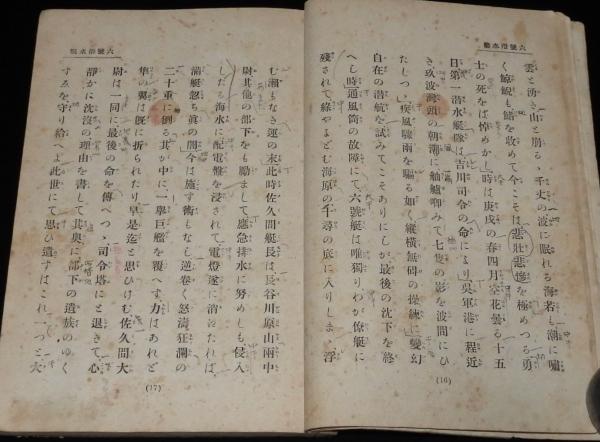 六號潜水艇
雲と湧き山と崩る、千丈の波に眠れる海若も潮に嘯
く鯨鯢も鰭を收めて今こそは悲壯悲慘を極めつる勇
士の死をば悼めかし時は庚戌の春四月空花曇る十五
日第一潜水艇隊は吉川司令の命により吳軍港に程近
き玖波灣頭の朝潮に舳艫啣みて七隻の影を波間にひ
たしつゝ疾風驟雨を驅る如く縱横無碍の操練に變幻
自在の潜航を試みてこそありにしが最後の沈下を終
へし時通風筒の故障にて六號艇は唯獨りわが僚艇に
殘されて綠やまどむ海原の千尋の底に入りしまゝ浮
(16)
六號潜水艇
む瀬もなき運の末此時佐久間艇長は長谷川原山兩中
尉其他の部下をも勵まして應急排水に努めしも侵入
しだる海水に配電盤を浸されて電燈遂に消えたれば
滿艇忽ち眞の闇今は施す術もなし逆卷く怒濤狂瀾の
二十重に圍る其が中に一擧巨艦を覆へす力はあれど
隼の翼は旣に折られたり早是迄と思ひけむ佐久間大
尉は一同に最後の命を傳へつゝ司令塔にと退きて心
靜かに沈沒の理由を書して其奥に部下の遺族のゆく
すゑを守り給へよ此世にて思ひ遺すはこれ一つと大
(17)